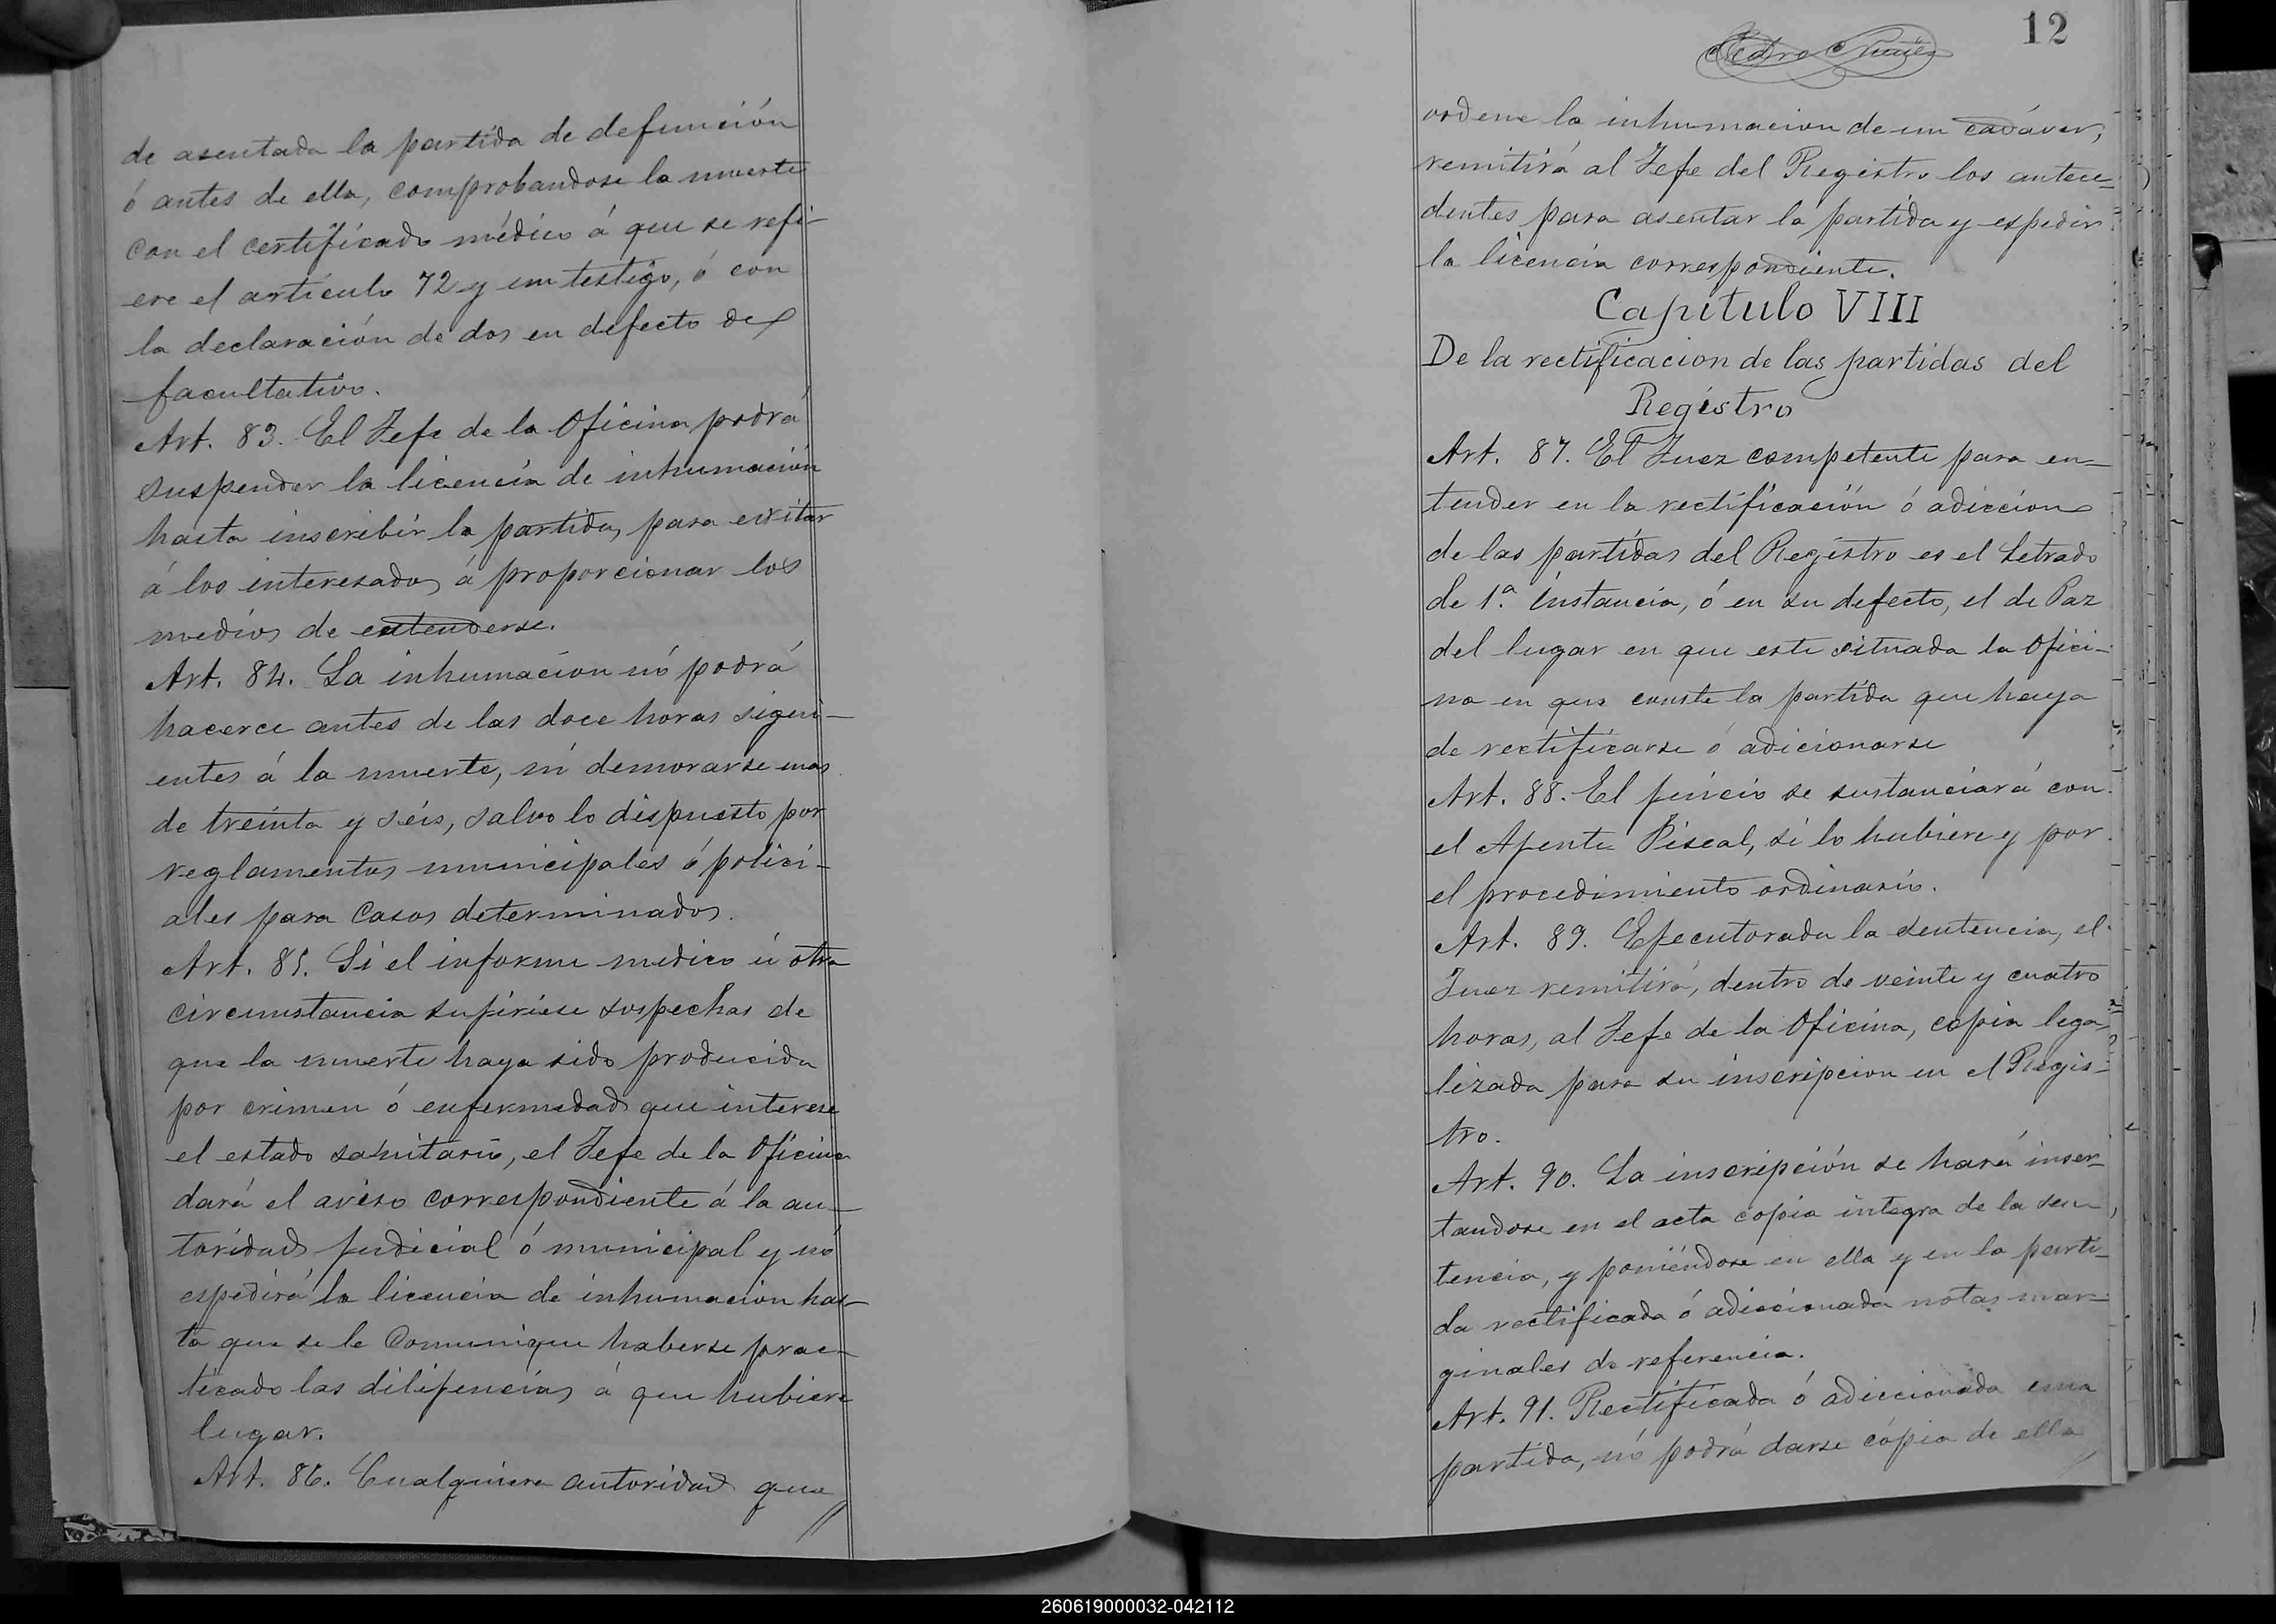 de asentada la partida de defunción
ó antes de ella, comprobandose la muerte
con el certificado médico á que se refi-
ere el artículo 72 y un testigo, ó con
la declaración de dos en defecto de
facultativo.
Art. 83. El Jefe de la Oficina podrá
suspender la licencia de inhumación
hasta inscribir la partida, para exitar
á los interesados á proporcionar los
medios de extenderse.
Art. 84. La inhumacion nó podrá
hacerce antes de las doce horas sigui-
entes á la muerte, ni demorarse mas
de treinta y seis, salvo lo dispuesto por
reglamentos municipales ó polici-
ales para casos determinados.
Art. 85. Si el informe medico ú otra
circunstancia sujiriese sospechas de
que la muerte haya sido producida
por crimen ó enfermedad que interese
el estado sanitario, el Jefe de la Oficina
dará el aviso correspondiente á la au-
toridad judicial ó municipal y nó
espedirá la licencia de inhumacion has-
ta que se le comunique haberse prac-
ticado las dilijencias á que hubiere
lugar.
Art. 86. Cualquiera autoridad que
12
Pedro Nuñez
ordene la inhumacion de un cadáver,
remitirá al Jefe del Registro los antece-
dentes para asentar la partida y espedir
la licencia correspondiente.
Capítulo VIII
De la rectificacion de las partidas del
Registro
Art. 87. El Juez competente para en-
tender en la rectificación ó adiccion
de las partidas del Registro es el Letrado
de 1ª. instancia, ó en su defecto, el de Paz
del lugar en que este situada la Ofici-
na en que conste la partida que haya
de rectificarse ó adicionarse
Art. 88. El juicio se sustanciará con
el Ajente Fiscal, si lo hubiere y por
el procedimiento ordinario.
Art. 89. Ejecutorada la sentencia, el
Juez remitirá, dentro de veinte y cuatro
horas, al Jefe de la Oficina, copia lega-
lizada para su inscripcion en el Regis-
tro.
Art. 90. La inscripción se hará inser-
tandose en el acta copia integra de la sen-
tencia, y poniéndose en ella y en la parti-
da rectificada ó adiccionada notas mar-
ginales de referencia.
Art. 91. Rectificada ó adiccionada una
partida, nó podrá darse cópia de ella
260619000032-042112